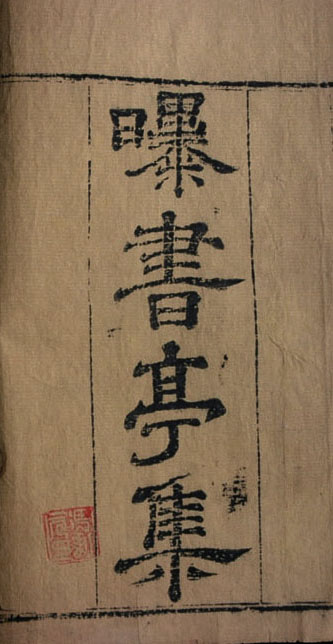 曝書亭集